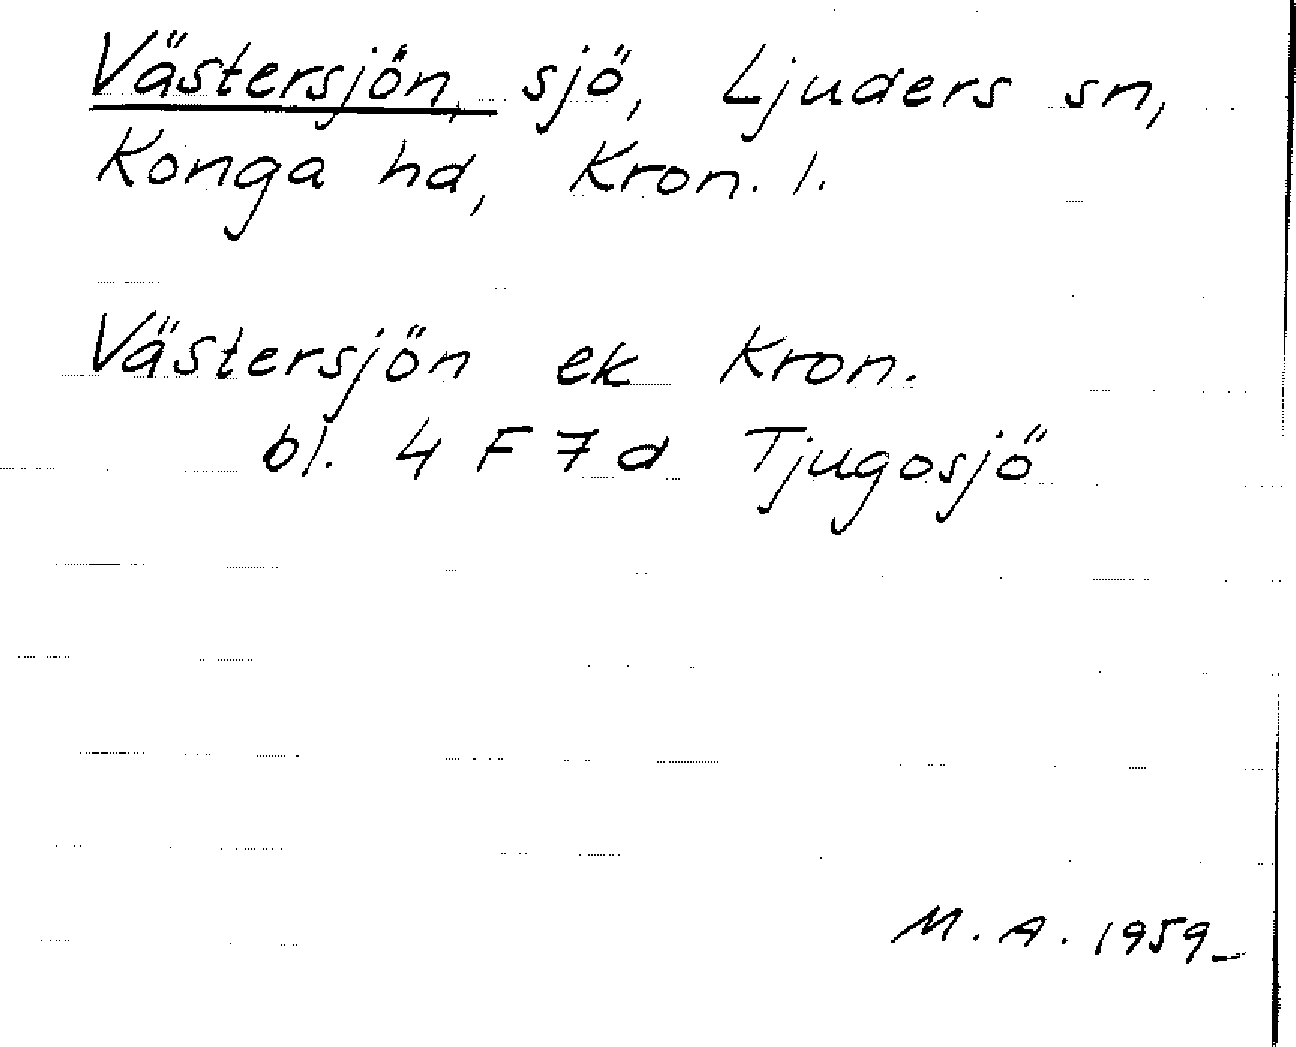 Västersjön, sjö, Ljuders sn,
Konga hd, Kron. l.
Västersjön ek Kron.
bl. 4 F 7 d Tjugosjö
M. A. 1959